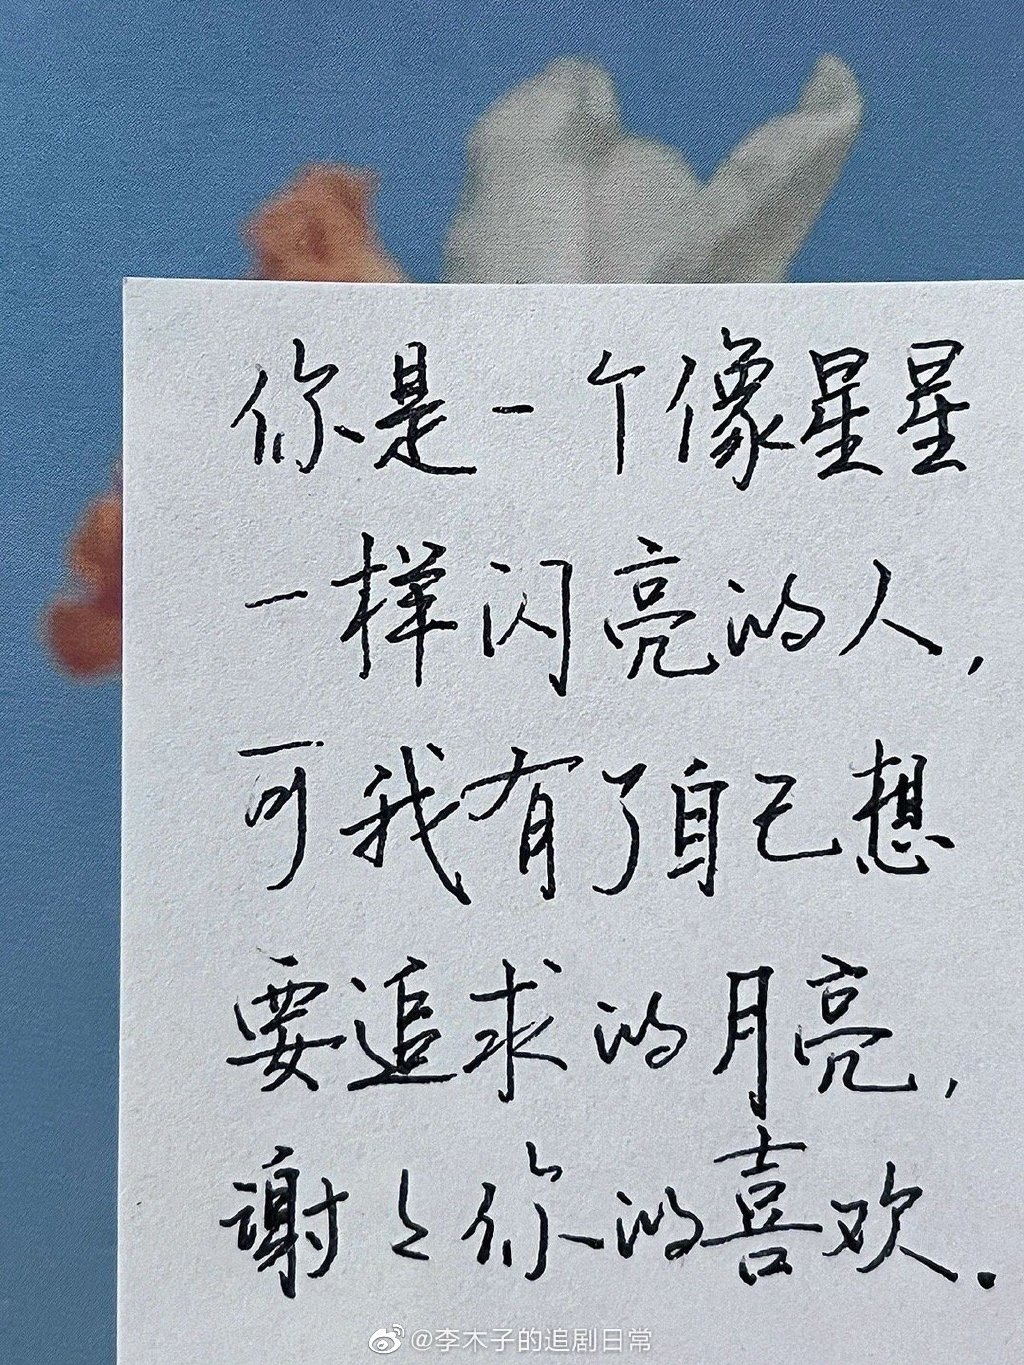 你是一个像星星
一样闪亮的人，
可我有了自己想
要追求的月亮，
谢々你的喜欢.
@李木子的追剧日常